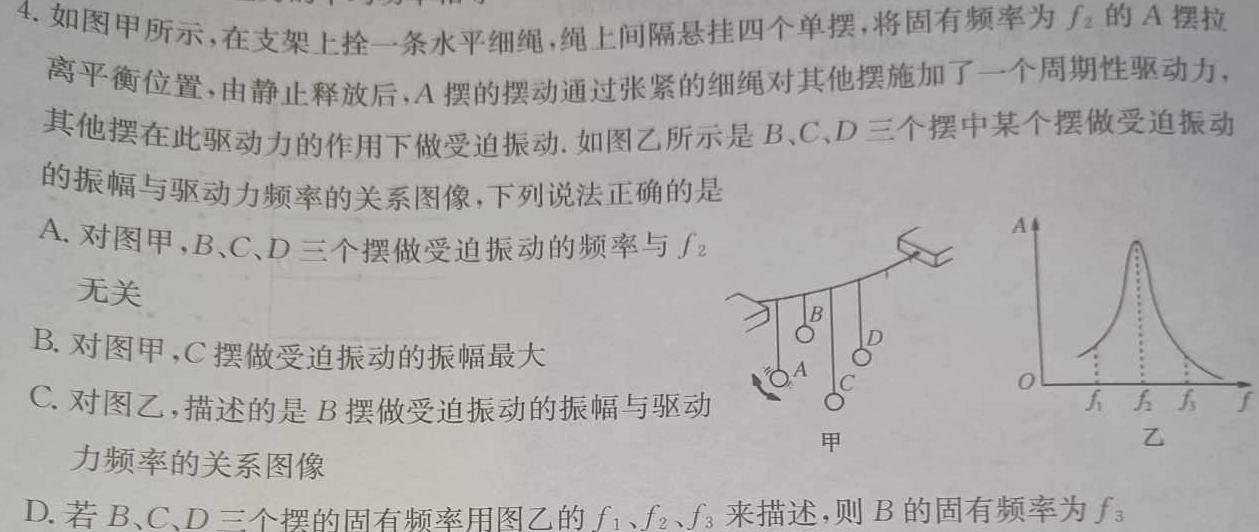 4. 如图甲所示,在支架上拴一条水平细绳,绳上间隔悬挂四个单摆,将固有频率为 f₂ 的 A 摆拉
离平衡位置,由静止释放后,A 摆的摆动通过张紧的细绳对其他摆施加了一个周期性驱动力,
其他摆在此驱动力的作用下做受迫振动. 如图乙所示是 B、C、D 三个摆中某个摆做受迫振动
的振幅与驱动力频率的关系图像,下列说法正确的是
A. 对图甲,B、C、D 三个摆做受迫振动的频率与 f₂
无关
B. 对图甲,C 摆做受迫振动的振幅最大
C. 对图乙,描述的是 B 摆做受迫振动的振幅与驱动
力频率的关系图像
D. 若 B、C、D 三个摆的固有频率用图乙的 f₁、f₂、f₃ 来描述,则 B 的固有频率为 f₃
B
D
A
C
甲
A
O
f₁ f₂ f₃ f
乙